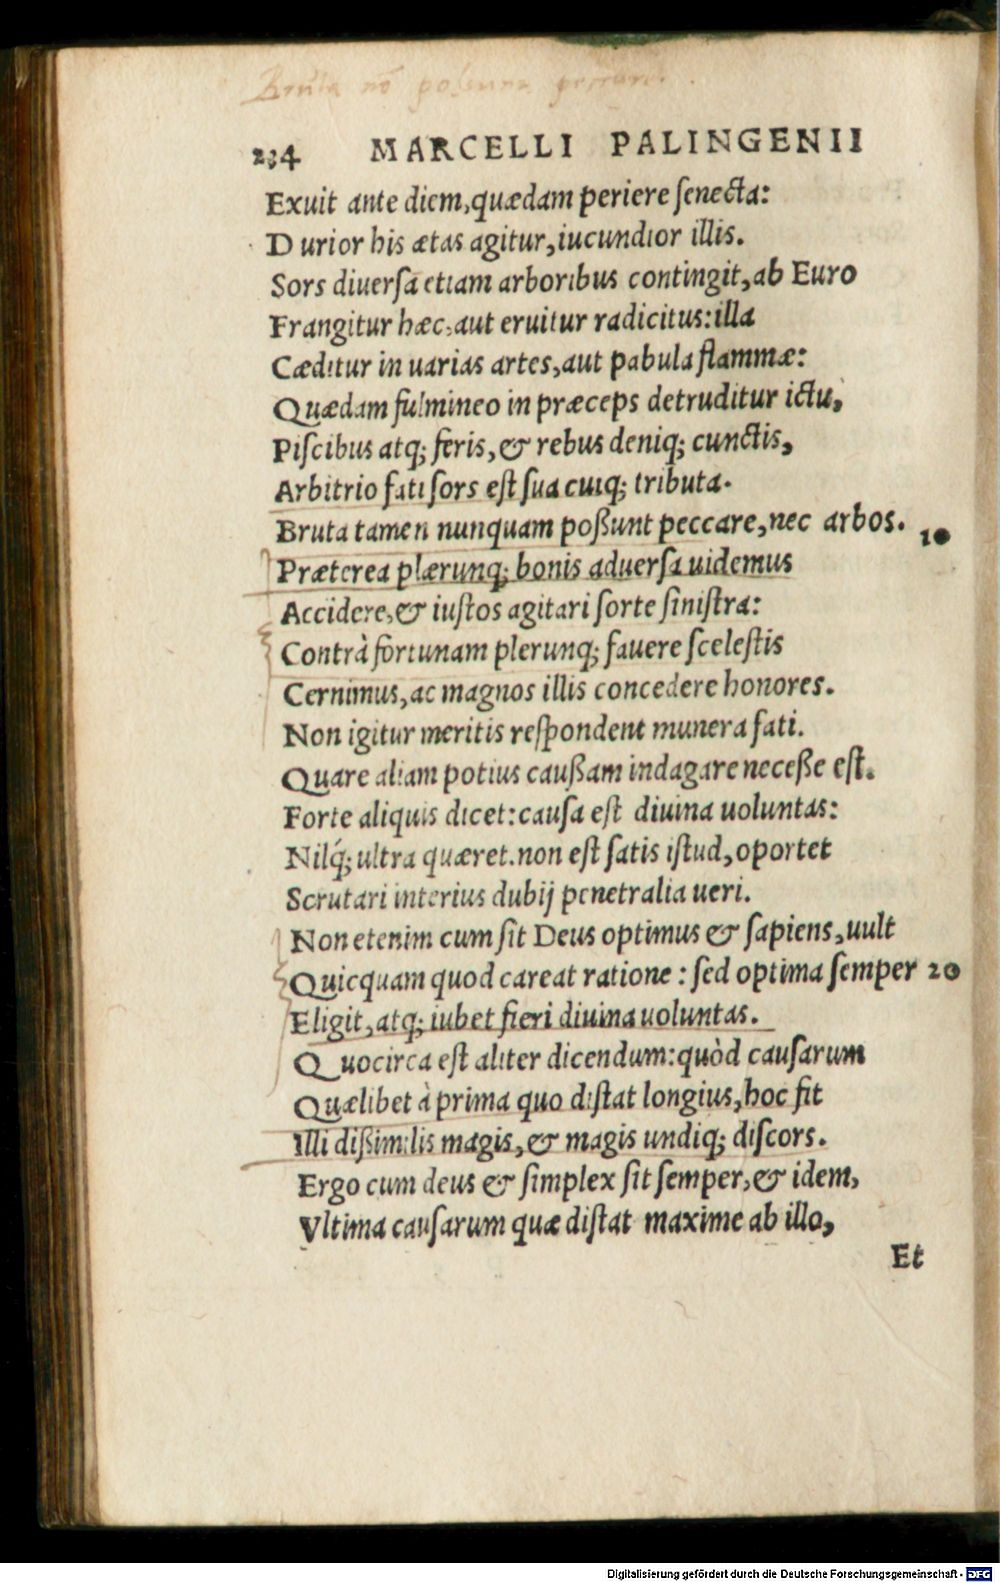 Bruta nõ possunt peccare.
234 MARCELLI PALINGENII
Exuit ante diem,quædam periere ſenecta:
D urior his ætas agitur,iucundior illis.
Sors diuerſa etiam arboribus contingit,ab Euro
Frangitur hæc,aut eruitur radicitus:illa
Cæditur in uarias artes,aut pabula flammæ:
Quædam fulmineo in præceps detruditur ictu,
Piſcibus atq; feris,& rebus deniq; cunctis,
Arbitrio fati ſors eſt ſua cuiq; tributa.
Bruta tamen nunquam poßunt peccare,nec arbos. 10
Præterea plærunq; bonis aduerſa uidemus
Accidere,& iuſtos agitari ſorte ſiniſtra:
Contrà fortunam plerunq; fauere ſceleſtis
Cernimus,ac magnos illis concedere honores.
Non igitur meritis reſpondent munera fati.
Quare aliam potius caußam indagare neceße eſt.
Forte aliquis dicet:cauſa eſt diuina uoluntas:
Nilq́; ultra quæret.non eſt ſatis iſtud,oportet
Scrutari interius dubij penetralia ueri.
Non etenim cum ſit Deus optimus & ſapiens,uult
Quicquam quod careat ratione : ſed optima ſemper 20
Eligit,atq; iubet fieri diuina uoluntas.
Q uocirca eſt aliter dicendum:quòd cauſarum
Quælibet à prima quo diſtat longius,hoc fit
Illi dißimilis magis,& magis undiq; diſcors.
Ergo cum deus & ſimplex ſit ſemper,& idem,
Vltima cauſarum quæ diſtat maxime ab illo,
Et
Digitalisierung gefördert durch die Deutsche Forschungsgemeinschaft - DFG